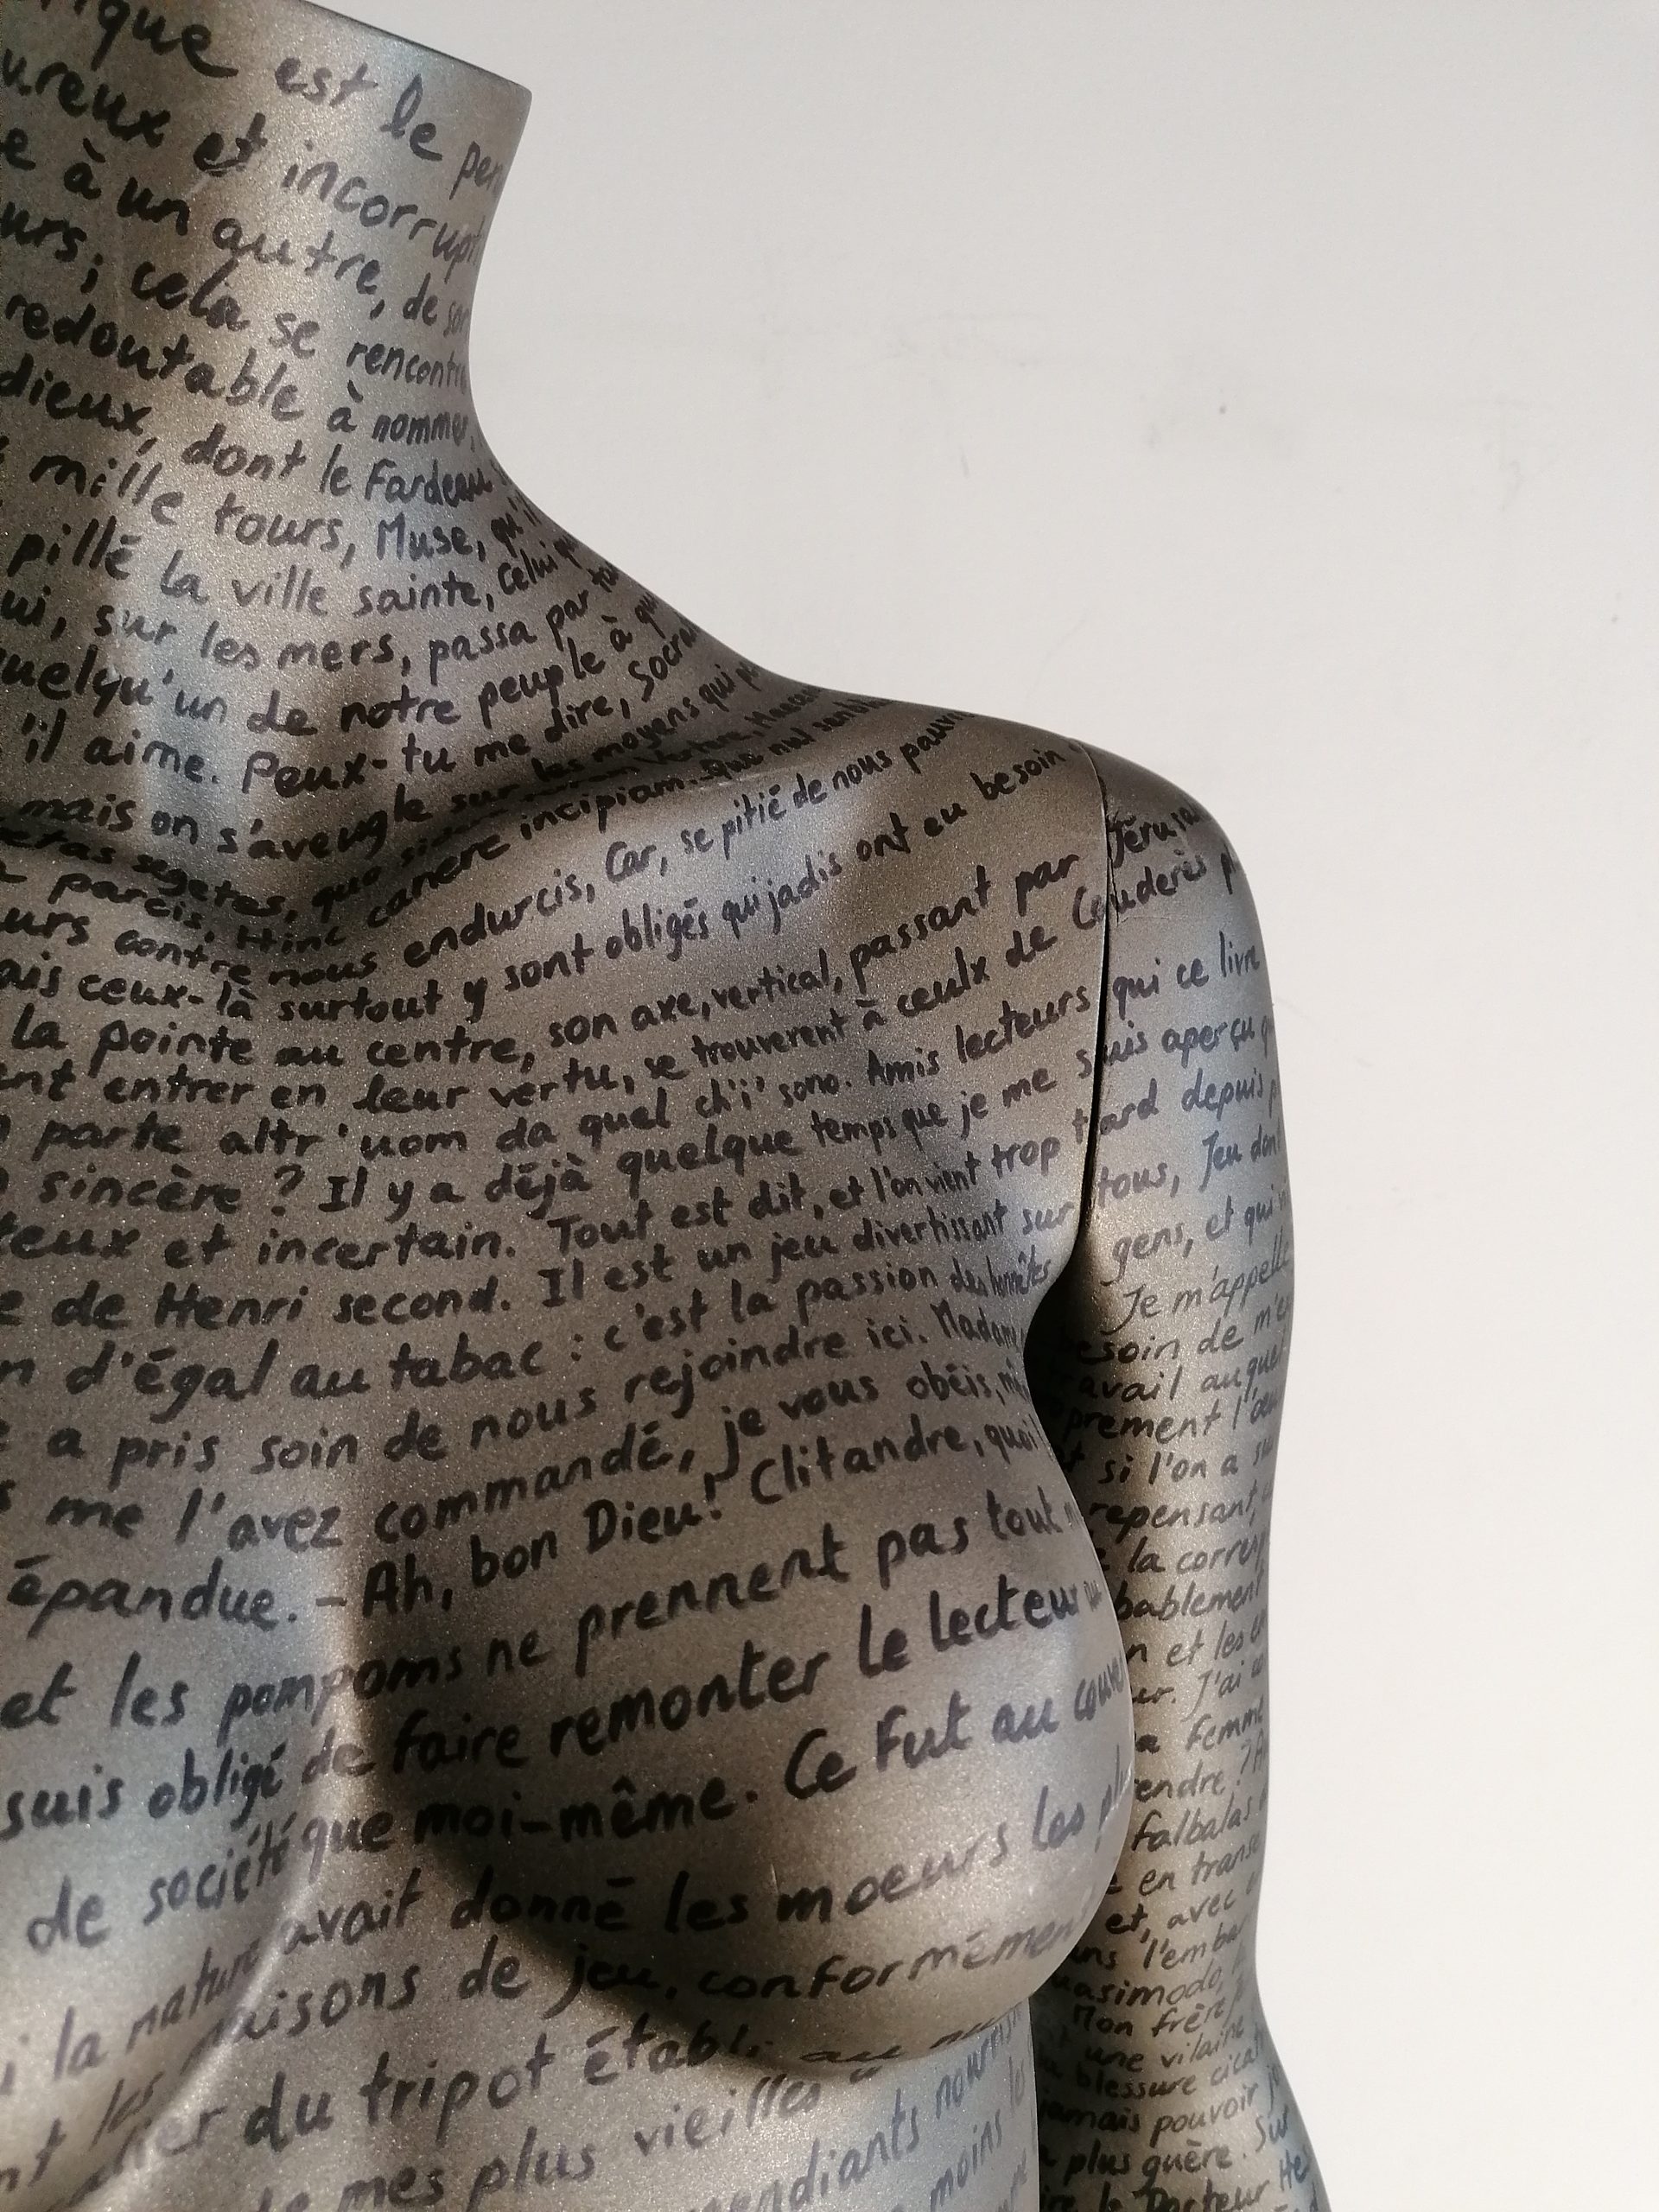 ique est le
ureux et incorrupti
e à un autre, de sor
urs; cela se rencontre
redoutable à nommer,
dieux, dont le fardeau
mille tours, Muse, qu'il
pillé la ville sainte, Celui qu
ui, sur les mers, passa par
quelqu'un de notre peuple à qu
'il aime. Peux-tu me dire, Socra
mais on s'aveugle sur les moyens qui
etas segetes, quo sidere
parcis, Hinc canere incipiam. Que nul
urs contre nous endurcis, Car, se pitié de nous pauvre
ais ceux-là surtout y sont obligés qui jadis ont eu besoin
la pointe au centre, son axe, vertical, passant par Jérusa
ent entrer en leur vertu, se trouverent à ceulx de Couderès p
parte altr'uom da quel ch'i' sono. Amis lecteurs qui ce livre
sincère ? Il y a déjà quelque temps que je me suis aperçu q
teux et incertain. Tout est dit, et l'on vient trop tard depuis p
e de Henri second. Il est un jeu divertissant sur tous, Jeu dont
n d'égal au tabac : c'est la passion des honnêtes gens, et qui
a pris soin de nous rejoindre ici. Madame
s me l'avez commandé, je vous obéis,
épandue. - Ah, bon Dieu! Clitandre, quoi
et les pompoms ne prennent pas tout
suis obligé de faire remonter le lecteur au
de société que moi-même. Ce fut au couve
i la nature avait donné les moeurs les plu
nt les maisons de jeu, conformément
du tripot établi au
mes plus vieilles
mendiants nourris
moins
Je m'appelle
besoin de m'e
avail auquel
prement l'oeu
t si l'on a su
repensant,
la corresp
bablement
n et les
er. J'ai
a femme
endre ?
falbalas
en transe
et, avec
ans l'embar
uasimodo,
Mon frère
une vilaine
a blessure cicatr
amais pouvoir j
plus guère. Sur
re le Docteur He